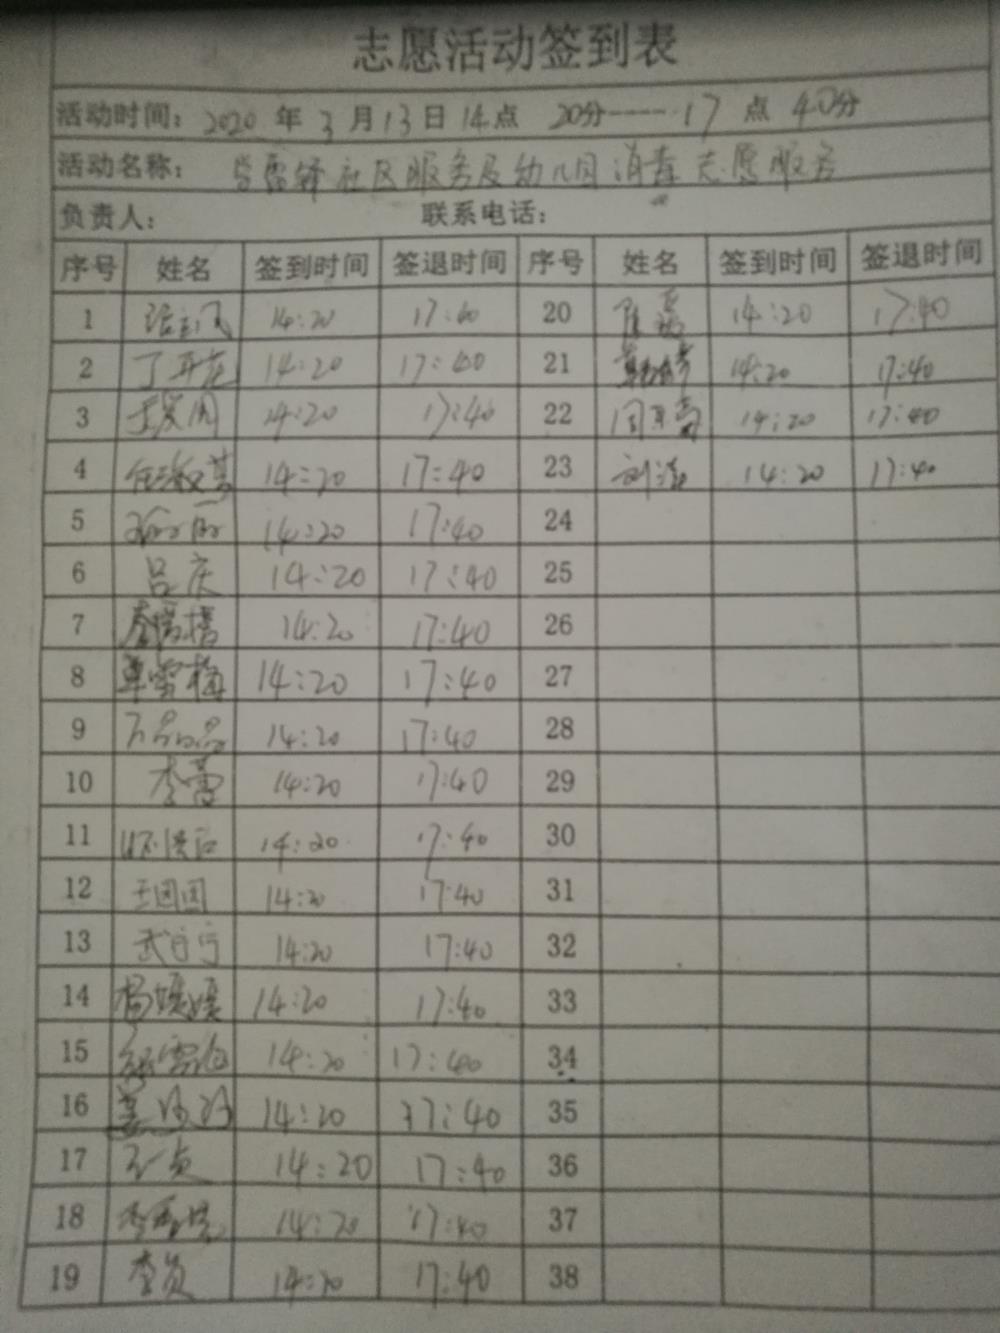 志愿活动签到表
活动时间：2020年3月13日14点20分——17点40分
活动名称：学雷锋社区服务及幼儿园消毒志愿服务
负责人： 联系电话：
序号 姓名 签到时间 签退时间 序号 姓名 签到时间 签退时间
1 14:20 17:40 20 14:20 17:40
2 14:20 17:40 21 14:20 17:40
3 14:20 17:40 22 14:20 17:40
4 14:20 17:40 23 14:20 17:40
5 14:20 17:40 24
6 吕庆 14:20 17:40 25
7 14:20 17:40 26
8 单雪梅 14:20 17:40 27
9 14:20 17:40 28
10 李蕾 14:20 17:40 29
11 14:20 17:40 30
12 王团团 14:20 17:40 31
13 武宁宁 14:20 17:40 32
14 杨媛媛 14:20 17:40 33
15 14:20 17:40 34
16 14:20 17:40 35
17 14:20 17:40 36
18 14:20 17:40 37
19 李贞 14:20 17:40 38